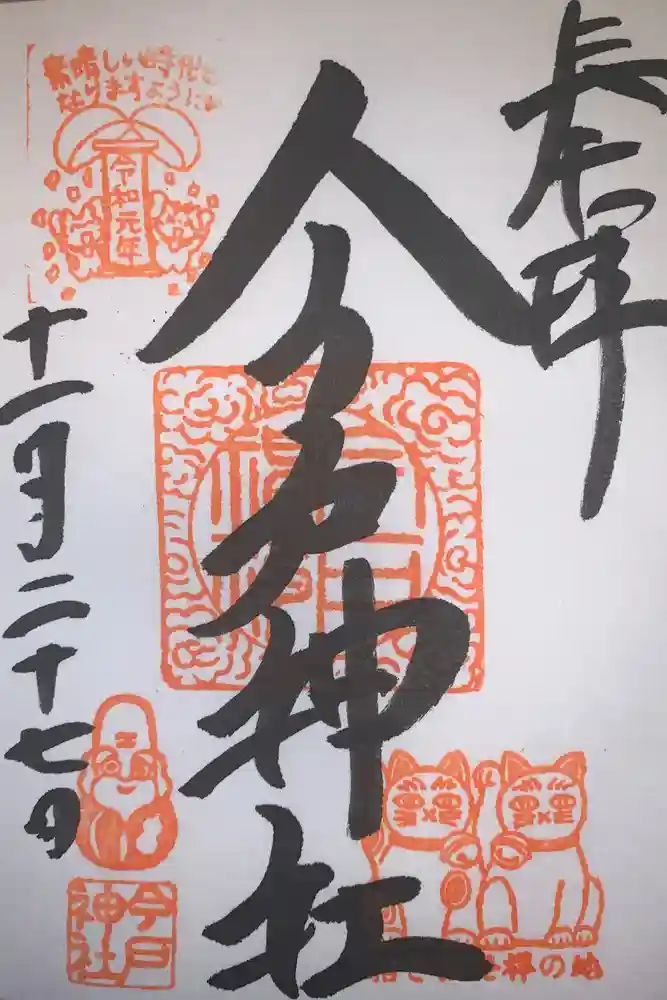 奉拝
今戸神社
素晴しい時代と
なりますように
令和元年
十一月二十七日
今戸
神社
招き猫発祥の地